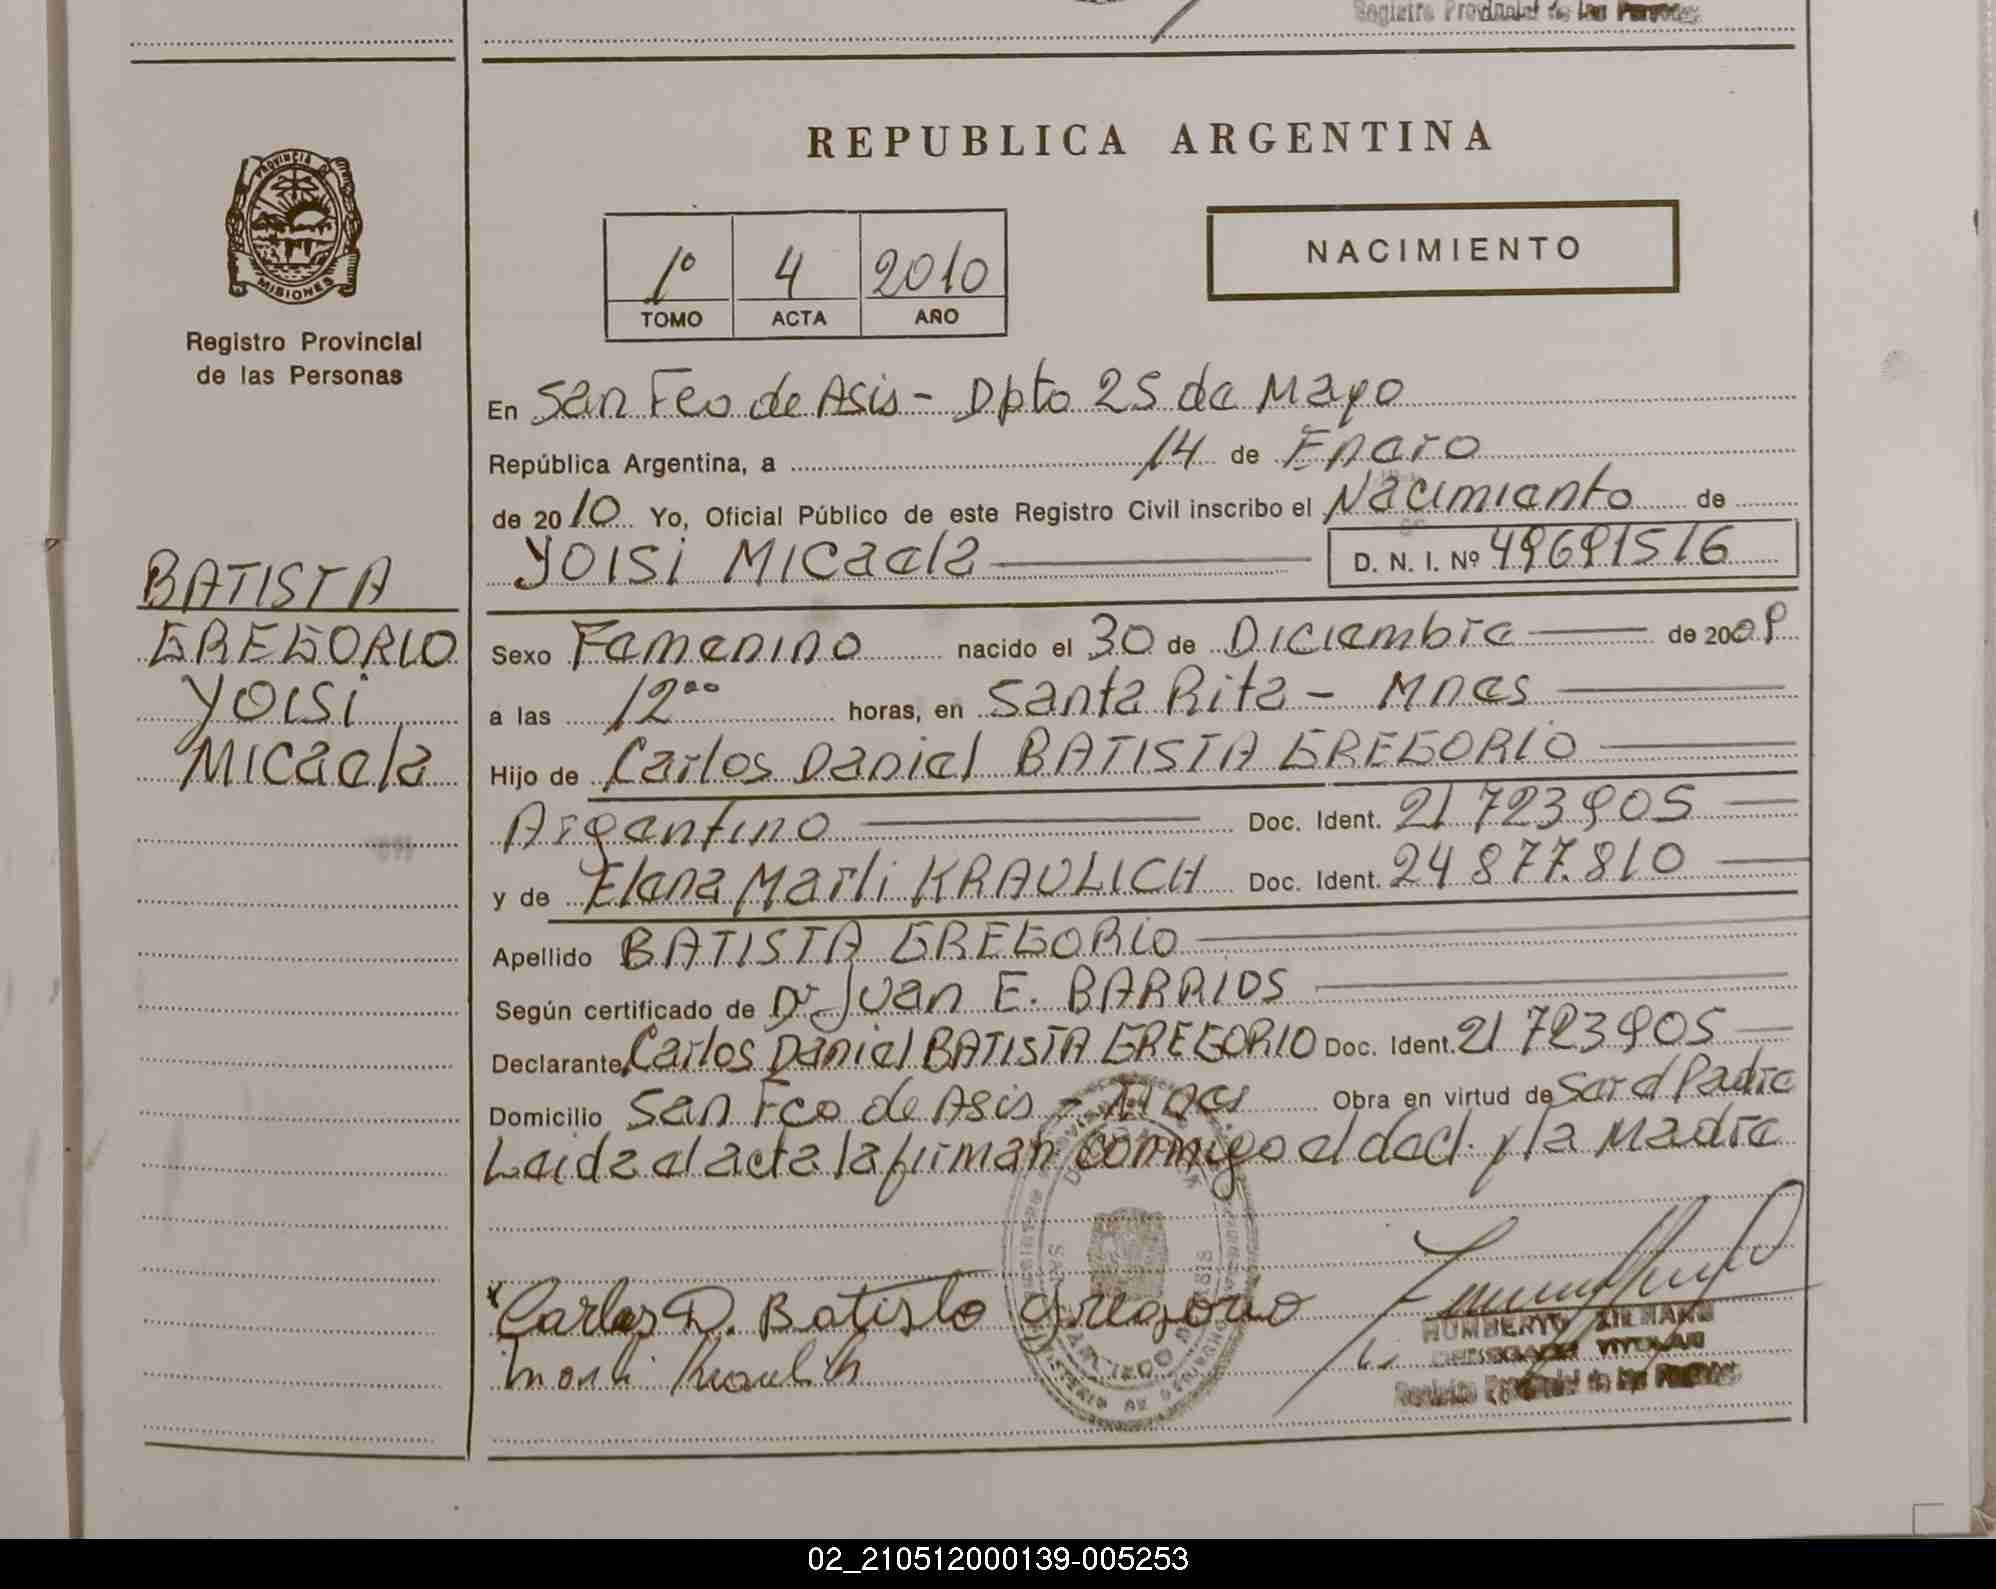 Registro Provincial de las Personas
PROVINCIA DE
MISIONES
Registro Provincial
de las Personas
REPUBLICA ARGENTINA
1º 4 2010
TOMO ACTA AÑO
NACIMIENTO
En San Fco de Asis - Dpto 25 de Mayo
República Argentina, a 14 de Enero
de 2010 Yo, Oficial Público de este Registro Civil inscribo el Nacimiento de
Yoisi Micaela D. N. I. Nº 49691516
BATISTA
GREGORIO
Yoisi
Micaela
Sexo Femenino nacido el 30 de Diciembre de 2009
a las 12⁰⁰ horas, en Santa Rita - Mnes
Hijo de Carlos Daniel BATISTA GREGORIO
Argentino Doc. Ident. 21 723905
y de Elena Marli KRAULICH Doc. Ident. 24 877.810
Apellido BATISTA GREGORIO
Según certificado de Dr Juan E. BARRIOS
Declarante Carlos Daniel BATISTA GREGORIO Doc. Ident. 21 723905
Domicilio San Fco de Asis - Mnes Obra en virtud de Ser el Padre
Leida el acta la firman conmigo el decl. y la Madre
Carlos D. Batista Gregorio
Marli Kraulich
HUMBERTO
Registro Provincial de las Personas
02_210512000139-005253